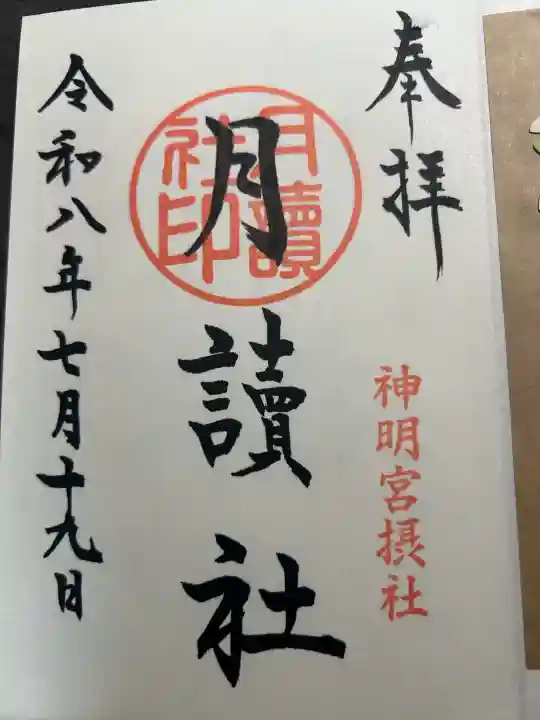 奉拝
神明宮摂社
月讀社
月讀社印
令和八年七月十九日